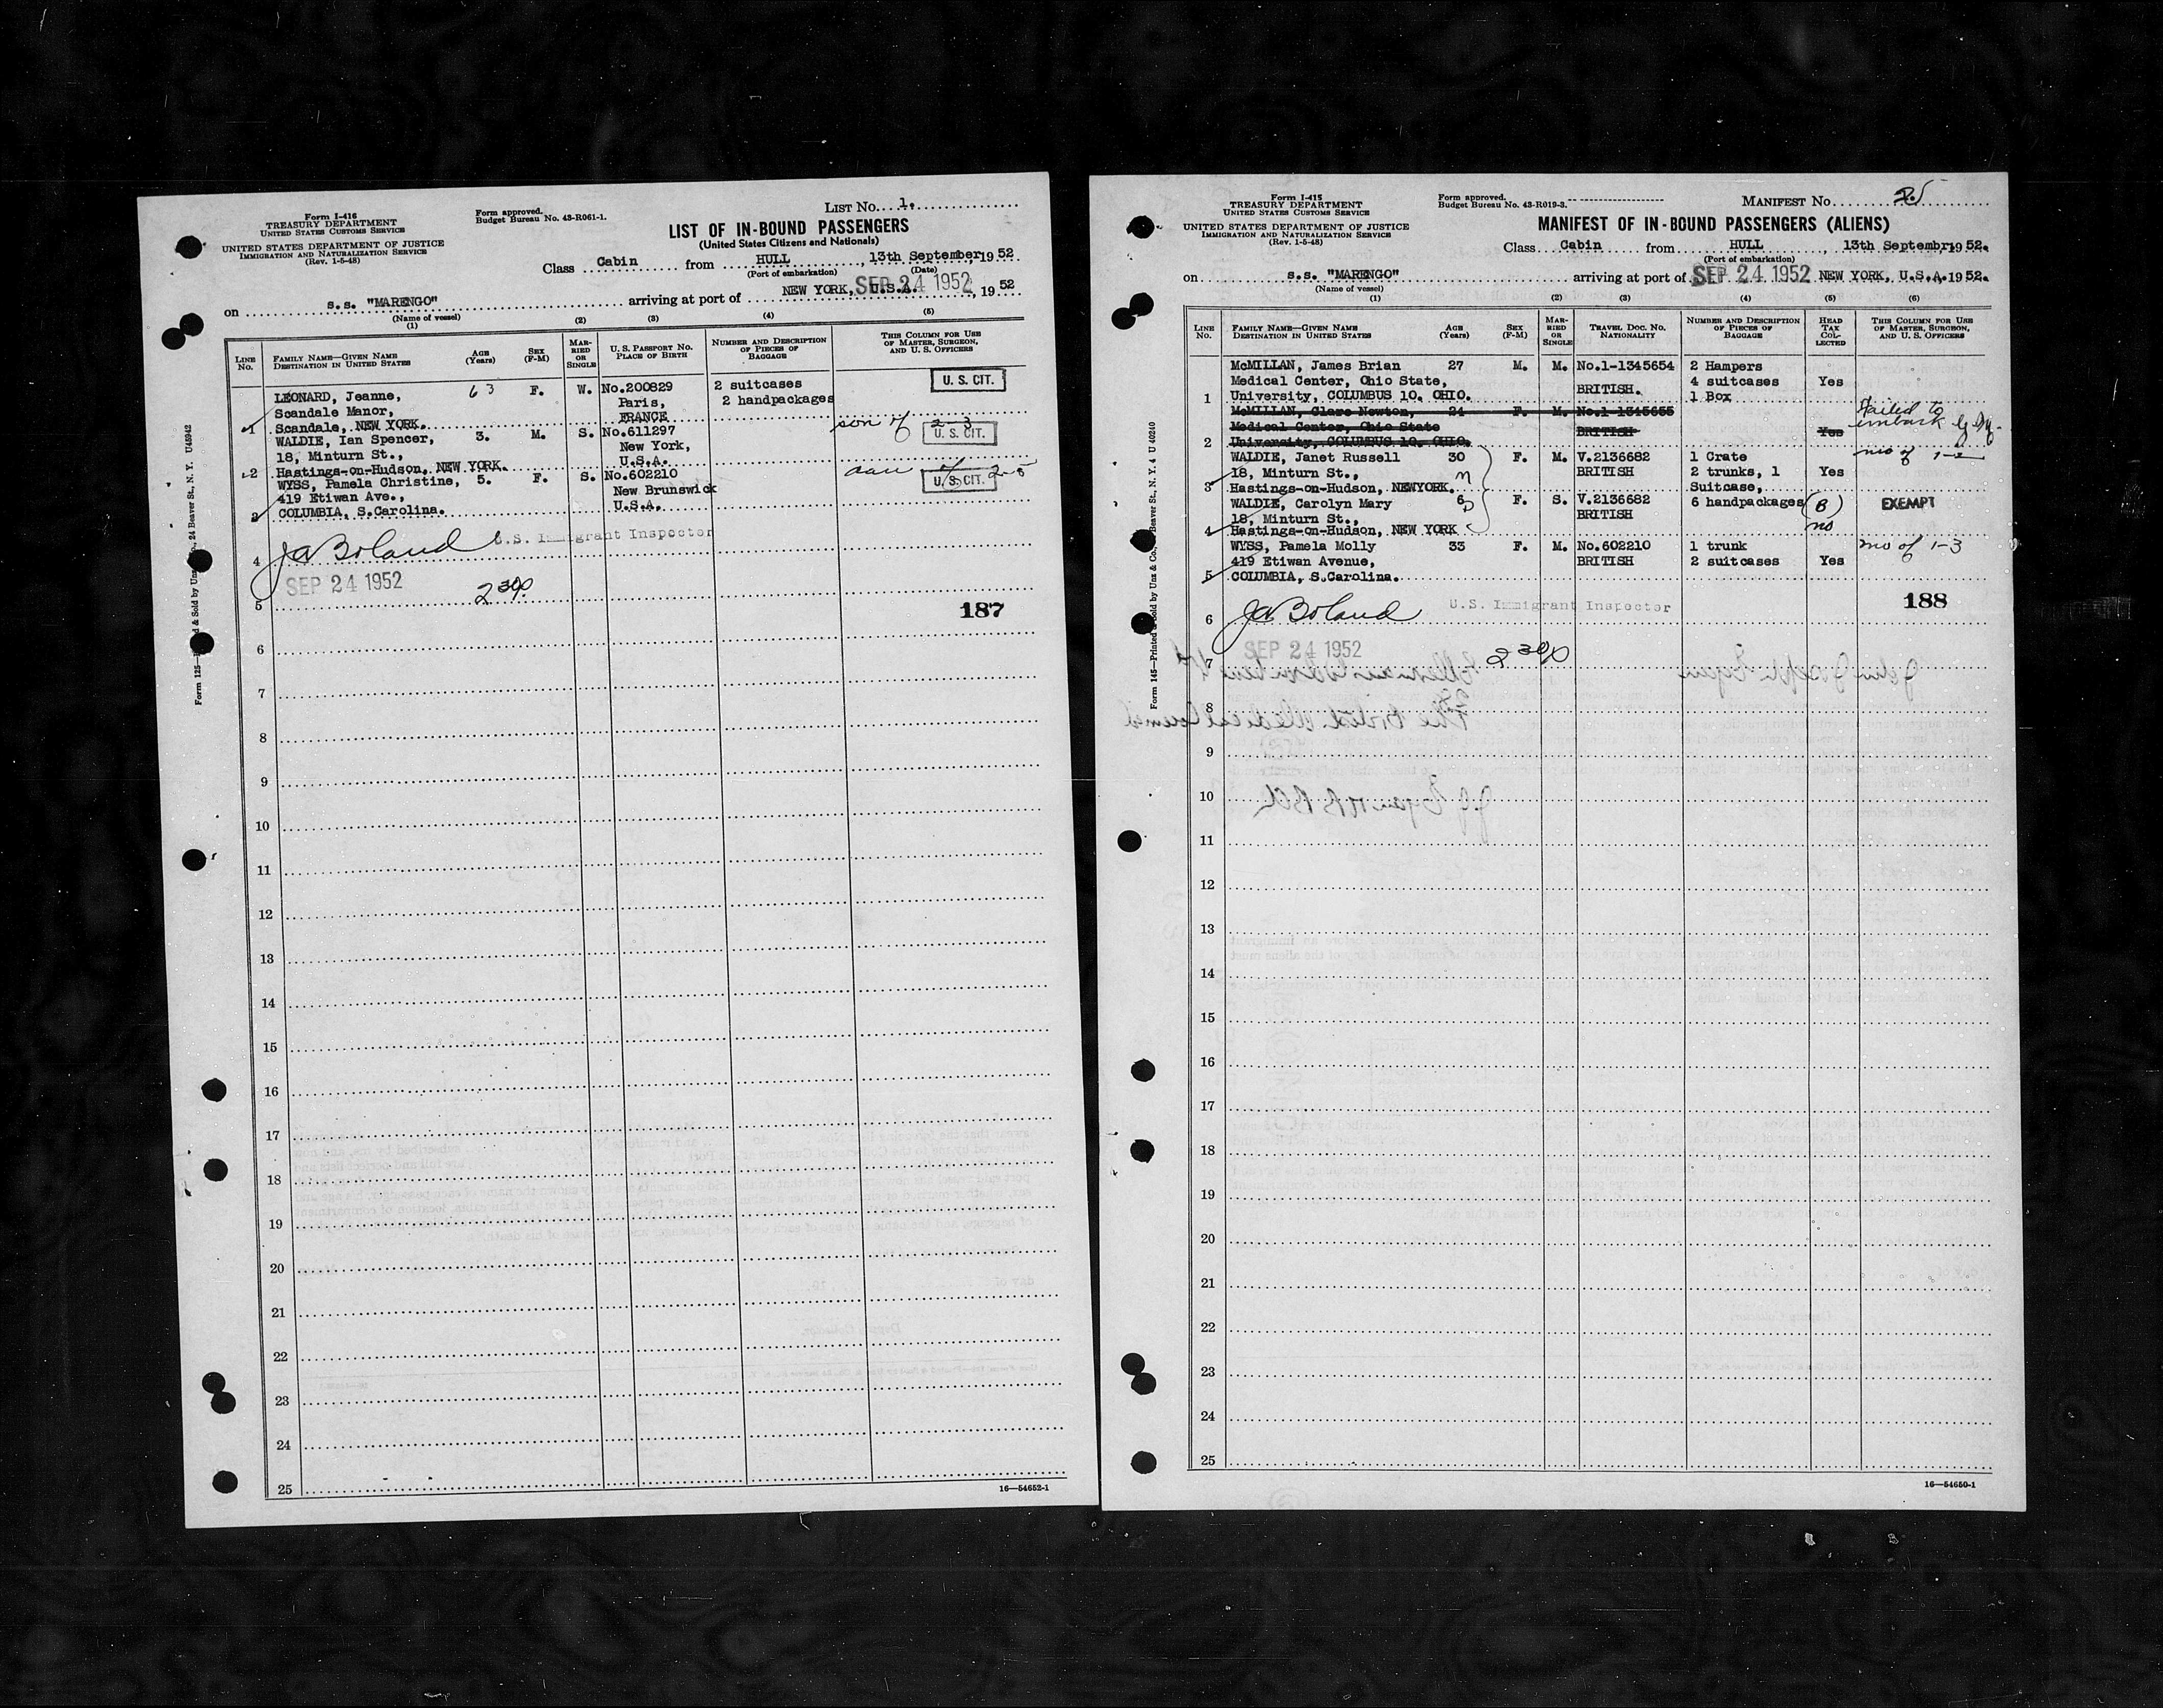 Form I-416
TREASURY DEPARTMENT
UNITED STATES CUSTOMS SERVICE
UNITED STATES DEPARTMENT OF JUSTICE
IMMIGRATION AND NATURALIZATION SERVICE
(Rev. 1-5-48)
Form approved.
Budget Bureau No. 43-R061-1.
LIST NO. 1.
LIST OF IN-BOUND PASSENGERS
(United States Citizens and Nationals)
Class Cabin from HULL, 13th September, 1952
(Port of embarkation) (Date)
on s.s. "MARENGO" arriving at port of NEW YORK, U.S.A. SEP 24 1952, 1952
(Name of vessel)
(1) (2) (3) (4) (5)
LINE No. FAMILY NAME—GIVEN NAME DESTINATION IN UNITED STATES AGE (Years) SEX (F-M) MARRIED OR SINGLE U. S. PASSPORT NO. PLACE OF BIRTH NUMBER AND DESCRIPTION OF PIECES OF BAGGAGE THIS COLUMN FOR USE OF MASTER, SURGEON, AND U. S. OFFICERS
LEONARD, Jeanne, 63 F. W. No.200829 2 suitcases U. S. CIT.
Scandale Manor, Paris, 2 handpackages
1 Scandale, NEW YORK. FRANCE
WALDIE, Ian Spencer, 3. M. S. No.611297 son of 2-3 U. S. CIT.
18, Minturn St., New York,
2 Hastings-on-Hudson, NEW YORK. U.S.A.
WYSS, Pamela Christine, 5. F. S. No.602210 dau of 2-5 U. S. CIT.
419 Etiwan Ave., New Brunswick
3 COLUMBIA, S.Carolina. U.S.A.
4 JA Boland U.S. Immigrant Inspector
SEP 24 1952 2 30p
5
187
6
7
8
9
10
11
12
13
14
15
16
17
18
19
20
21
22
23
24
25
16—54652-1
Form I-415
TREASURY DEPARTMENT
UNITED STATES CUSTOMS SERVICE
UNITED STATES DEPARTMENT OF JUSTICE
IMMIGRATION AND NATURALIZATION SERVICE
(Rev. 1-5-48)
Form approved.
Budget Bureau No. 43-R019-3.
MANIFEST NO.
MANIFEST OF IN-BOUND PASSENGERS (ALIENS)
Class Cabin from HULL, 13th September, 1952.
(Port of embarkation)
on s.s. "MARENGO" arriving at port of SEP 24 1952 NEW YORK, U.S.A. 1952.
(Name of vessel)
(1) (2) (3) (4) (5) (6)
LINE No. FAMILY NAME—GIVEN NAME DESTINATION IN UNITED STATES AGE (Years) SEX (F-M) MARRIED OR SINGLE TRAVEL DOC. NO. NATIONALITY NUMBER AND DESCRIPTION OF PIECES OF BAGGAGE HEAD TAX COLLECTED THIS COLUMN FOR USE OF MASTER, SURGEON, AND U. S. OFFICERS
McMILLAN, James Brian 27 M. M. No.1-1345654 2 Hampers
Medical Center, Ohio State, BRITISH. 4 suitcases Yes
1 University, COLUMBUS 10. OHIO. 1 Box
McMILLAN, Clare Newton, 24 F. M. No.1-1345655 Failed to
Medical Center, Ohio State BRITISH Yes embark
2 University, COLUMBUS 10. OHIO.
WALDIE, Janet Russell 30 F. M. V.2136682 1 Crate mo of 1-2
18, Minturn St., BRITISH 2 trunks, 1 Yes
3 Hastings-on-Hudson, NEWYORK. Suitcase,
WALDIE, Carolyn Mary 6 F. S. V.2136682 6 handpackages (B) EXEMPT
18, Minturn St., BRITISH no
4 Hastings-on-Hudson, NEW YORK
WYSS, Pamela Molly 33 F. M. No.602210 1 trunk mo of 1-3
419 Etiwan Avenue, BRITISH 2 suitcases Yes
5 COLUMBIA, S.Carolina.
188
6 JA Boland U.S. Immigrant Inspector
SEP 24 1952 2 30p
7
8
9
10
11
12
13
14
15
16
17
18
19
20
21
22
23
24
25
16—54650-1